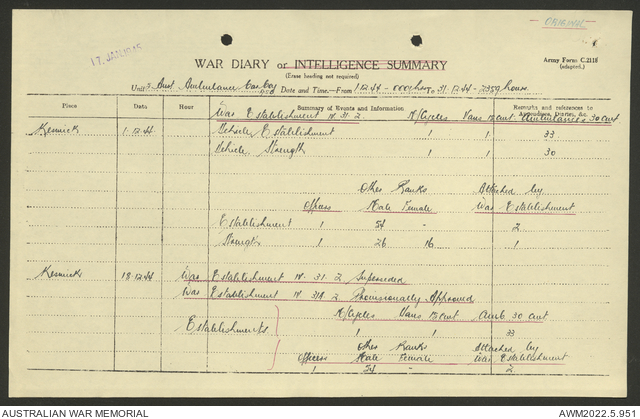 ORIGINAL
17 JAN 1945
WAR DIARY or INTELLIGENCE SUMMARY
(Erase heading not required)
Army Form C.2118
(adapted.)
Unit 5 Aust Ambulance Car Coy Date and Time.—From 1.12.44 - 0001 hrs To 31.12.44 - 2359 hours
Place Date Hour Summary of Events and Information Remarks and references to Appendices, Diaries, &c.
War Establishment IV. 31. 2 M/Cycles Vans 12 cwt Ambulances 30 cwt
Keswick 1.12.44 Vehicle Establishment 1 1 33
Vehicle Strength 1 1 30
Other Ranks Attached by
Officers Male Female War Establishment
Establishment 1 54 - 2
Strength 1 26 16 1
Keswick 18.12.44 War Establishment IV. 31. 2 Superseded
War Establishment IV 31A 2 Provisionally Approved
M/Cycles Vans 12 cwt Amb 30 cwt
Establishments 1 1 33
Other Ranks Attached by
Officers Male Female War Establishment
1 54 - 2
AUSTRALIAN WAR MEMORIAL
AWM2022.5.951